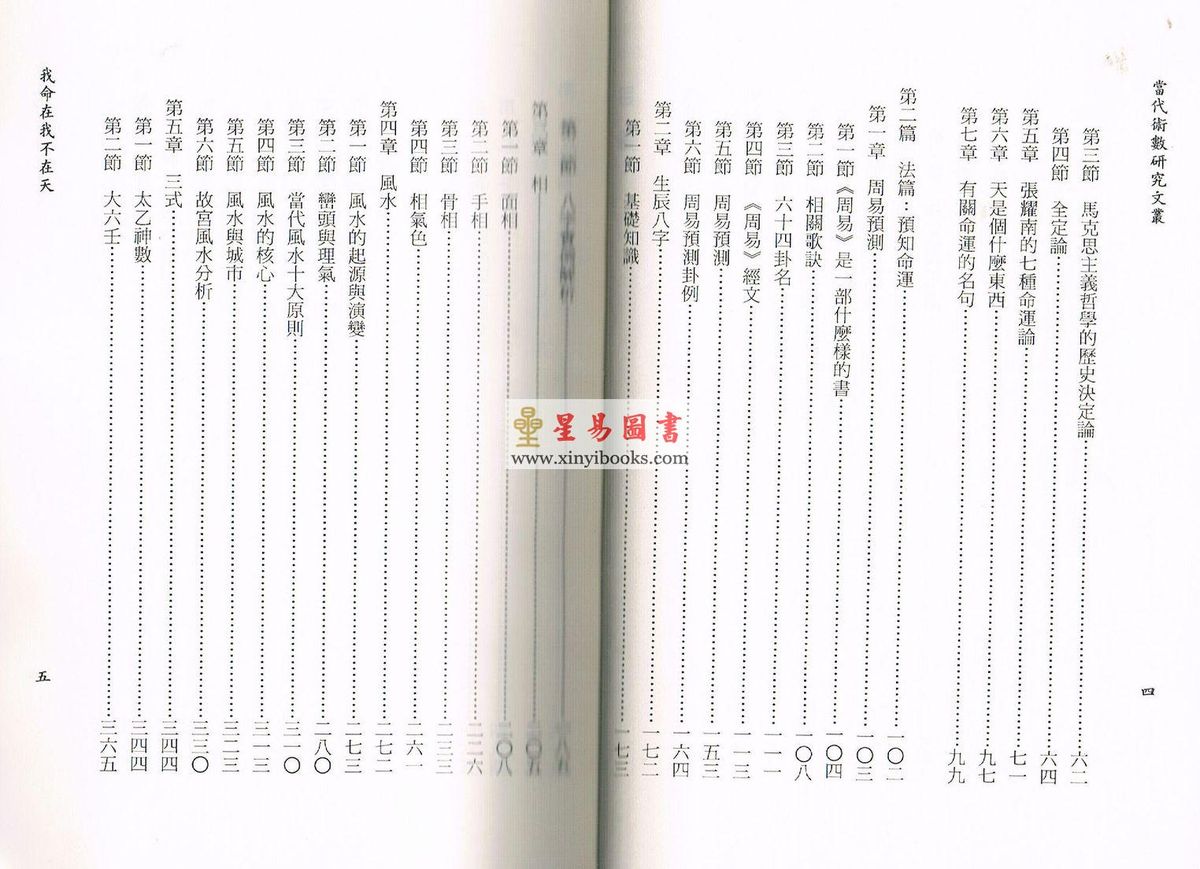 當代術數研究文叢
第三節　馬克思主義哲學的歷史決定論……六二
第四節　全定論……六四
第五章　張耀南的七種命運論……七一
第六章　天是個什麼東西……九七
第七章　有關命運的名句……九九
第二篇　法篇：預知命運……一〇二
第一章　周易預測……一〇三
第一節　《周易》是一部什麼樣的書……一〇四
第二節　相關歌訣……一〇八
第三節　六十四卦名……一一一
第四節　《周易》經文……一一三
第五節　周易預測……一五三
第六節　周易預測卦例……一六四
第二章　生辰八字……一七二
第一節　基礎知識……一七三
四
第二節　八字
第三章　相……二〇五
第一節　面相……二〇八
第二節　手相……二二六
第三節　骨相……二三三
第四節　相氣色……二六一
第四章　風水……二七二
第一節　風水的起源與演變……二七三
第二節　巒頭與理氣……二八〇
第三節　當代風水十大原則……三一〇
第四節　風水的核心……三一三
第五節　風水與城市……三二三
第六節　故宮風水分析……三三〇
第五章　三式……三四四
第一節　太乙神數……三四四
第二節　大六壬……三六五
我命在我不在天
五
星易圖書
www.xinyibooks.com